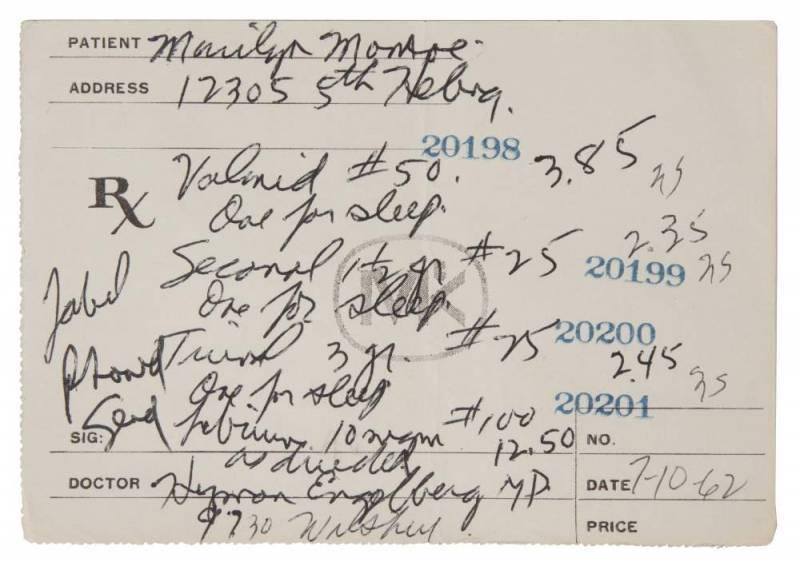 PATIENT Marilyn Monroe
ADDRESS 12305 5th Helena
20198
Rx Valmid #50. 3.85 NS
One for sleep.
Seconal 1½ gr #25 2.35
20199 NS
Label One for sleep.
MK
20200
Tuinal 3 gr. #25 2.45 NS
One for sleep
20201
SIG: Send Librium 10 mgm #100 12.50 NO.
as directed
DOCTOR Hyman Engelberg MD DATE 7-10-62
9730 Wilshire
PRICE